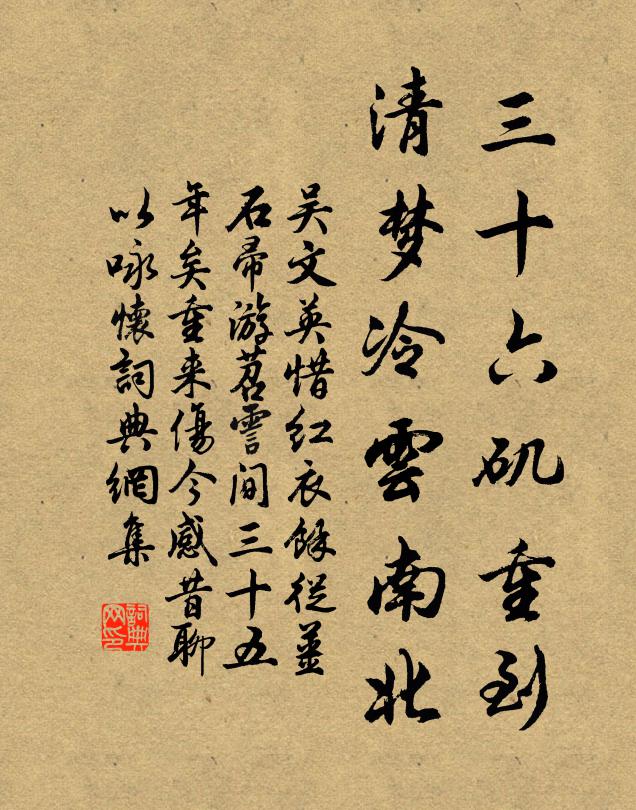 三十六矶重到
清梦冷雲南北
吴文英惜红衣餘從薑
石帚游苕霅间三十五
年矣重来傷今感昔聊
以咏懷詞典網集
詞典网印